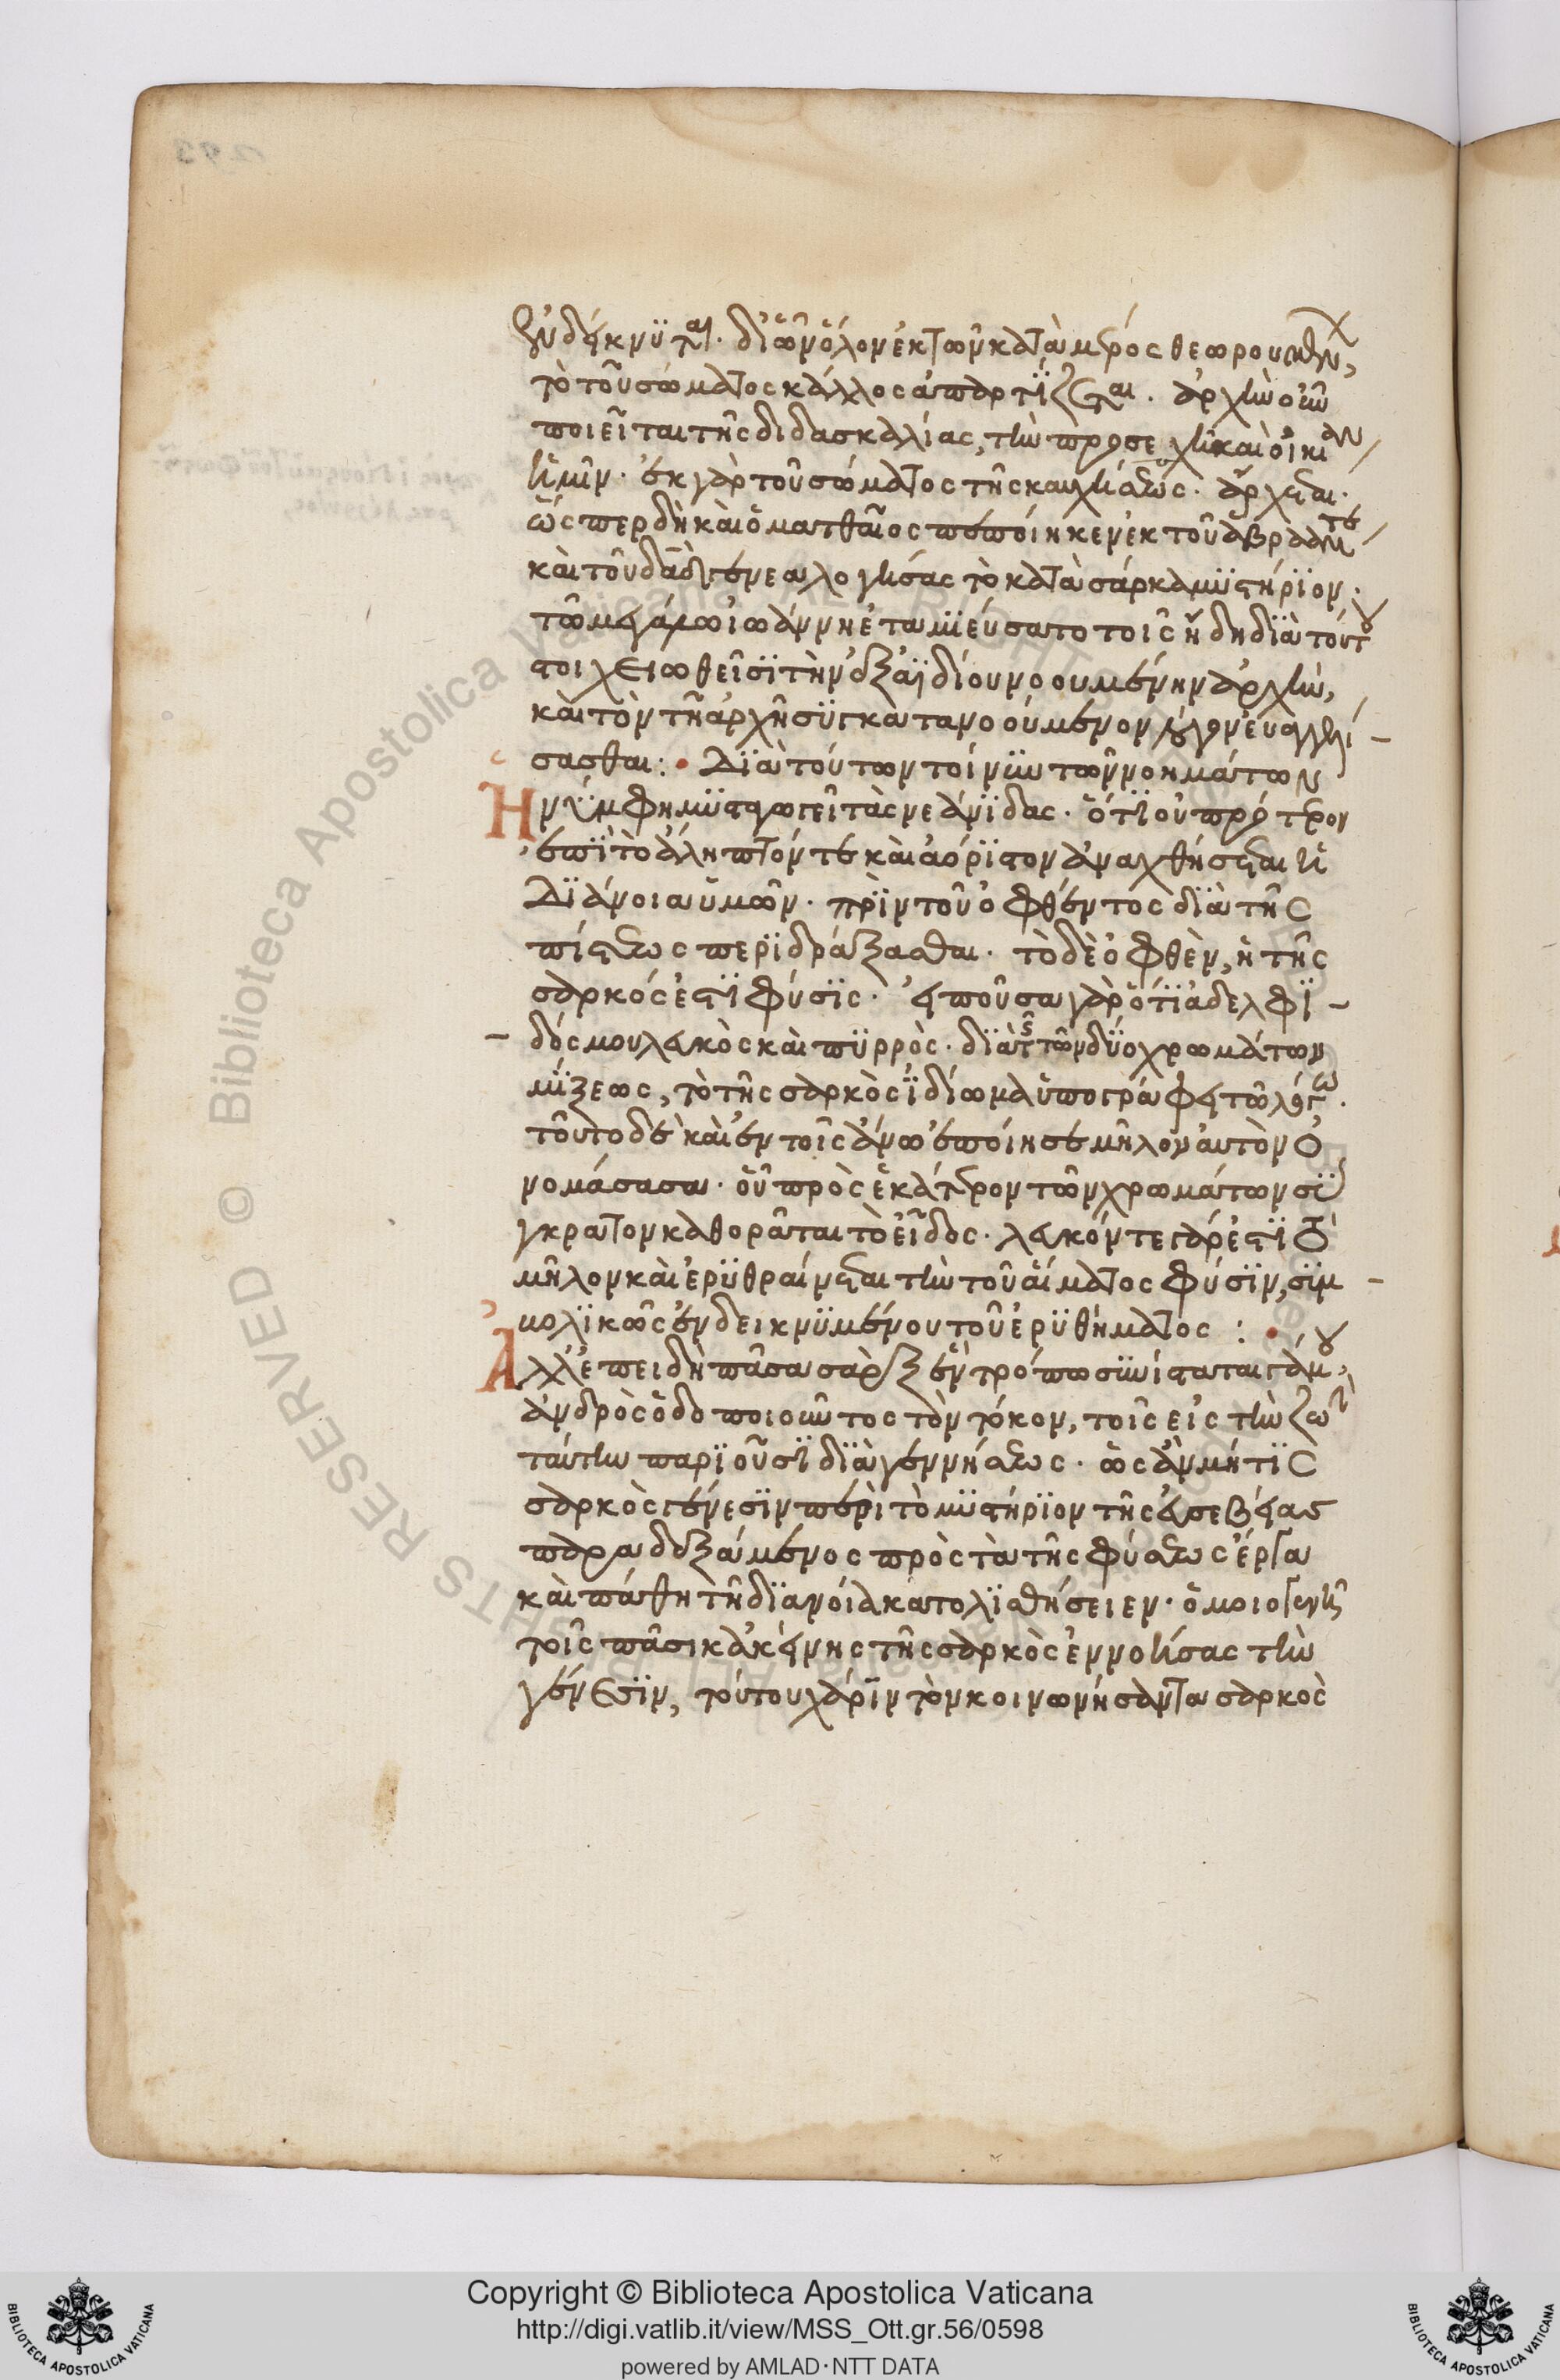 ἐνδείκνυται· δι' ὧν ὅλον ἐκ τῶν κατὰ μέρος θεωρουμένων,
τὸ τοῦ σώματος κάλλος ἀπαρτίζεται. ἀρχὴν οὖν
ποιεῖται τῆς διδασκαλίας, τὴν προσεχῆ καὶ οἰκείαν
ἡμῖν· ἐκ γὰρ τοῦ σώματος τῆς κατηχήσεως· ἄρχεται·
ὥσπερ δὴ καὶ ὁ ματθαῖος πεποίηκεν ἐκ τοῦ ἀβραάμ τε
καὶ τοῦ δαδ γενεαλογήσας τὸ κατὰ σάρκα μυστήριον·
τῶ μεγάλω ἰωάννη ἐταμιεύσατο τοῖς ἤδη διὰ τούτου
στοιχειωθεῖσι τὴν ἐξ ἀϊδίου νοουμένην ἀρχὴν,
καὶ τὸν τῆ ἀρχῆ συγκατανοούμενον λόγον εὐαγγελί-
σασθαι: Διὰ τούτων τοίνυν τῶν νοημάτων
Η νύμφη μυσταγωγεῖ τὰς νεάνιδας· ὅτι οὐ πρότερον
ἐπὶ τὸ ἄληπτόν τε καὶ ἀόριστον ἀναχθήσεται ἡ
Διάνοια ὑμῶν· πρὶν τοῦ ὀφθέντος διὰ τῆς
πίστεως περιδράξασθαι. τὸ δὲ ὀφθὲν, ἡ τῆς
σαρκός ἐστι φύσις· εἰποῦσα γὰρ ὅτι ἀδελφι-
-δός μου λευκὸς καὶ πυρρὸς. διὰ τῆς τῶν δύο χρωμάτων
μίξεως, τὸ τῆς σαρκὸς ἰδίωμα ὑπογράφει τῶ λόγω.
τοῦτο δὲ καὶ ἐν τοῖς ἄνω ἐποίησε μῆλον αὐτὸν ὀ
νομάσασα· οὗ πρὸς ἑκάτερον τῶν χρωμάτων σύ
γκρατον καθορᾶται τὸ εἶδος· λευκόν τε γάρ ἐστι τὸ
μῆλον καὶ ἐρυθραίνεται τὴν τοῦ αἵματος φύσιν, συμ-
βολικῶς ἐνδεικνυμένου τοῦ ἐρυθήματος :
Ἀλλ' ἐπειδὴ πᾶσα σὰρξ ἐν τρόπω συνίσταται γάμου,
ἀνδρὸς ὁδοποιοῦντος τὸν τόκον, τοῖς εἰς τὴν ζωὴν
ταύτην παριοῦσι διὰ γεννήσεως· ὡς ἂν μή τις
σαρκὸς γένεσιν περὶ τὸ μυστήριον τῆς εὐσεβείας
παραδεξάμενος πρὸς τὰ τῆς φύσεως ἔργα
καὶ πάθη τῆ διανοία κατολισθήσειεν· ὁμοιογενῆ
τοῖς πᾶσι κἀκείνης τῆς σαρκὸς ἐννοήσας τὴν
γένεσιν, τούτου χάριν τὸν κοινωνήσαντα σαρκὸς
Copyright © Biblioteca Apostolica Vaticana
http://digi.vatlib.it/view/MSS_Ott.gr.56/0598
powered by AMLAD·NTT DATA